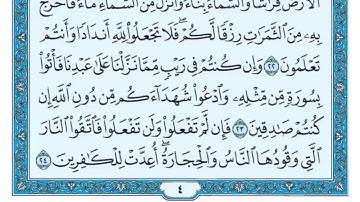 ٱلۡأَرۡضَ فِرَٰشٗا وَٱلسَّمَآءَ بِنَآءٗ وَأَنزَلَ مِنَ ٱلسَّمَآءِ مَآءٗ فَأَخۡرَجَ
بِهِۦ مِنَ ٱلثَّمَرَٰتِ رِزۡقٗا لَّكُمۡۖ فَلَا تَجۡعَلُواْ لِلَّهِ أَندَادٗا وَأَنتُمۡ
تَعۡلَمُونَ ٢٢ وَإِن كُنتُمۡ فِي رَيۡبٖ مِّمَّا نَزَّلۡنَا عَلَىٰ عَبۡدِنَا فَأۡتُواْ
بِسُورَةٖ مِّن مِّثۡلِهِۦ وَٱدۡعُواْ شُهَدَآءَكُم مِّن دُونِ ٱللَّهِ إِن
كُنتُمۡ صَٰدِقِينَ ٢٣ فَإِن لَّمۡ تَفۡعَلُواْ وَلَن تَفۡعَلُواْ فَٱتَّقُواْ ٱلنَّارَ
ٱلَّتِي وَقُودُهَا ٱلنَّاسُ وَٱلۡحِجَارَةُۖ أُعِدَّتۡ لِلۡكَٰفِرِينَ ٢٤
٤